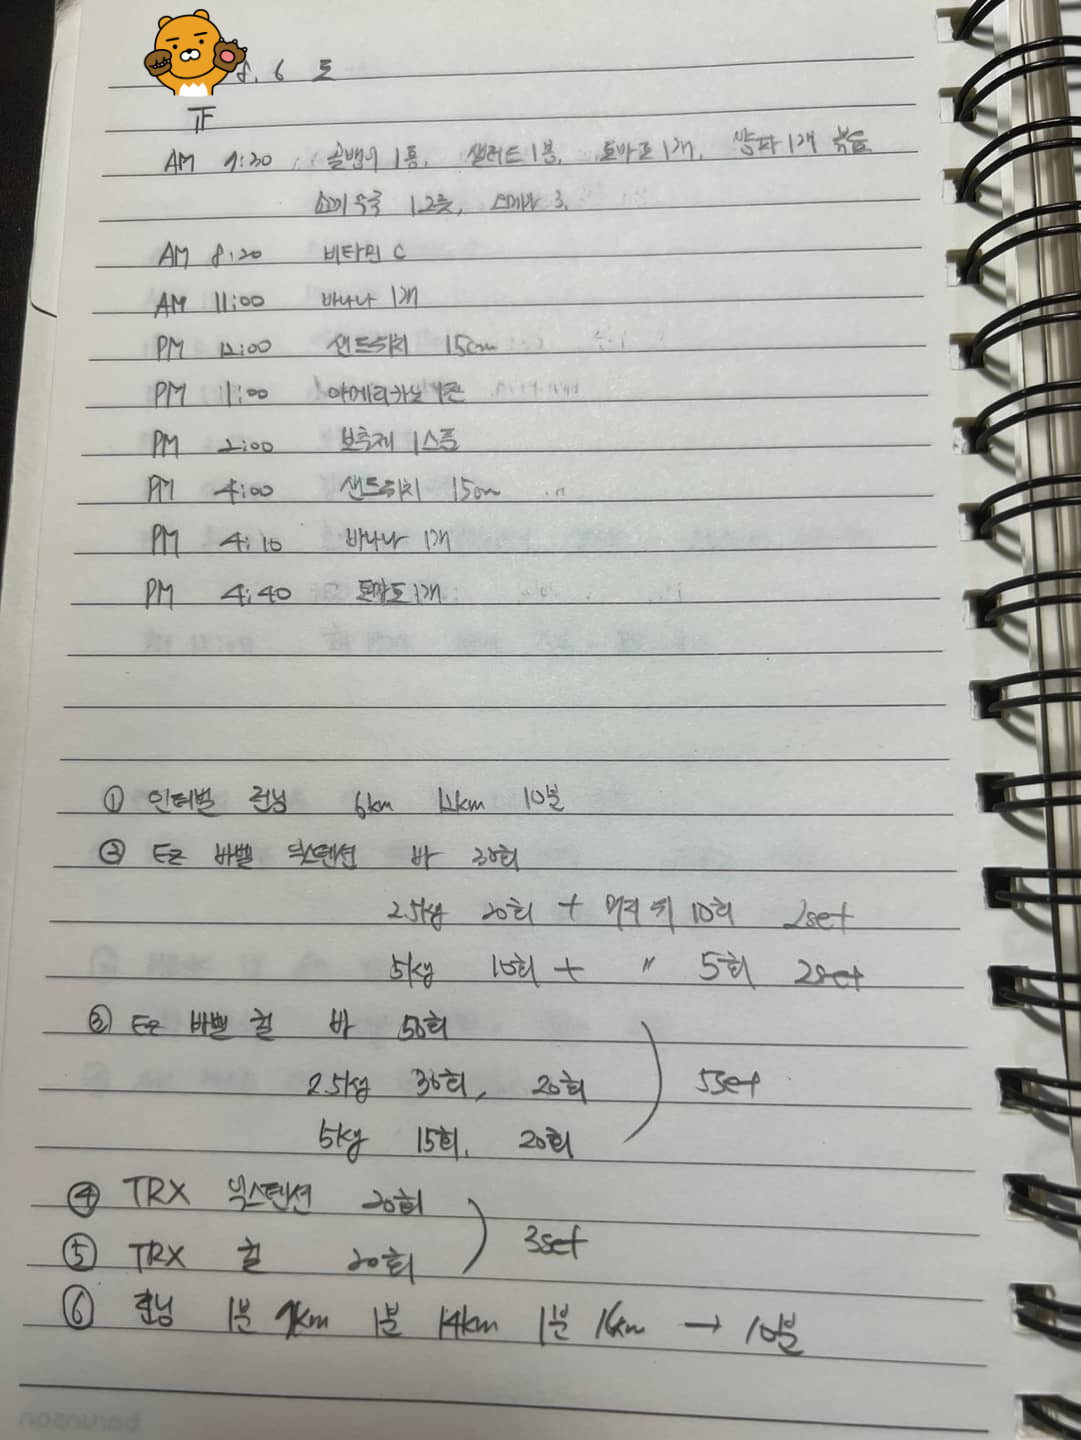 8. 6 토
AM 7:30 골뱅이 1통, 샐러드 1봉, 토마토 1개, 양파 1개 볶음
소고기 12쪽, 3.
AM 8:20 비타민 C
AM 11:00 바나나 1개
PM 12:00 샌드위치 15cm
PM 1:00 아메리카노 1잔
PM 2:00 보충제 1스푼
PM 4:00 샌드위치 15cm
PM 4:10 바나나 1개
PM 4:40 토마토 1개
① 인터벌 런닝 6km 12km 10분
② EZ 바벨 익스텐션 바 30회
2.5kg 20회 + 머리 뒤 10회 2set
5kg 10회 + 〃 5회 2set
③ EZ 바벨 컬 바 50회
2.5kg 30회, 20회 5set
5kg 15회, 20회
④ TRX 익스텐션 20회
⑤ TRX 컬 20회 3set
⑥ 런닝 1분 9km 1분 14km 1분 16km → 10분
barunson